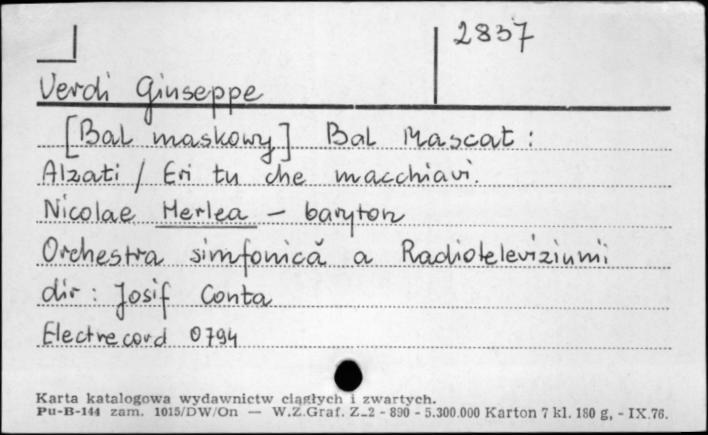 2837
Verdi Giuseppe
[Bal maskowy] Bal Mascat :
Alzati / Eri tu che macchiavi.
Nicolae Herlea - baryton
Orchestra simfonică a Radioteleviziunii
dir : Josif Conta
Electrecord 0794
Karta katalogowa wydawnictw ciągłych i zwartych.
Pu-B-144 zam. 1015/DW/On — W.Z.Graf. Z-2 - 890 - 5.300.000 Karton 7 kl. 180 g, - IX.76.